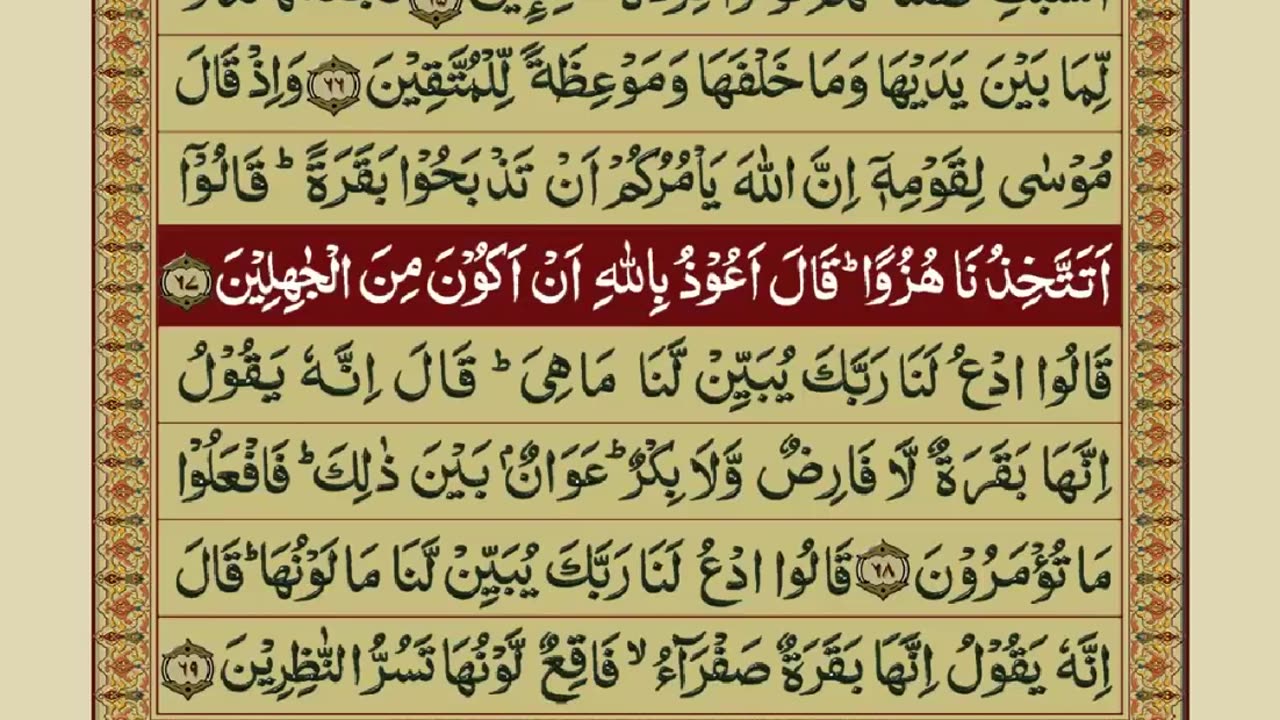 لِّمَا بَيْنَ يَدَيْهَا وَمَا خَلْفَهَا وَمَوْعِظَةً لِّلْمُتَّقِيْنَ ٦٦ وَاِذْ قَالَ
مُوْسٰى لِقَوْمِهٖٓ اِنَّ اللّٰهَ يَاْمُرُكُمْ اَنْ تَذْبَحُوْا بَقَرَةً ؕ قَالُوْٓا
اَتَتَّخِذُنَا هُزُوًا ؕ قَالَ اَعُوْذُ بِاللّٰهِ اَنْ اَكُوْنَ مِنَ الْجٰهِلِيْنَ ٦٧
قَالُوا ادْعُ لَنَا رَبَّكَ يُبَيِّنْ لَّنَا مَا هِىَ ؕ قَالَ اِنَّهٗ يَقُوْلُ
اِنَّهَا بَقَرَةٌ لَّا فَارِضٌ وَّلَا بِكْرٌ ؕ عَوَانٌۢ بَيْنَ ذٰلِكَ ؕ فَافْعَلُوْا
مَا تُؤْمَرُوْنَ ٦٨ قَالُوا ادْعُ لَنَا رَبَّكَ يُبَيِّنْ لَّنَا مَا لَوْنُهَا ؕ قَالَ
اِنَّهٗ يَقُوْلُ اِنَّهَا بَقَرَةٌ صَفْرَآءُ ۙ فَاقِعٌ لَّوْنُهَا تَسُرُّ النّٰظِرِيْنَ ٦٩